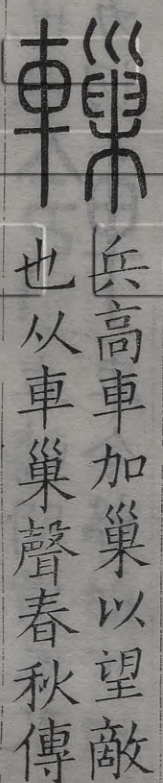 轈
兵高車加巢以望敵
也从車巢聲春秋傳